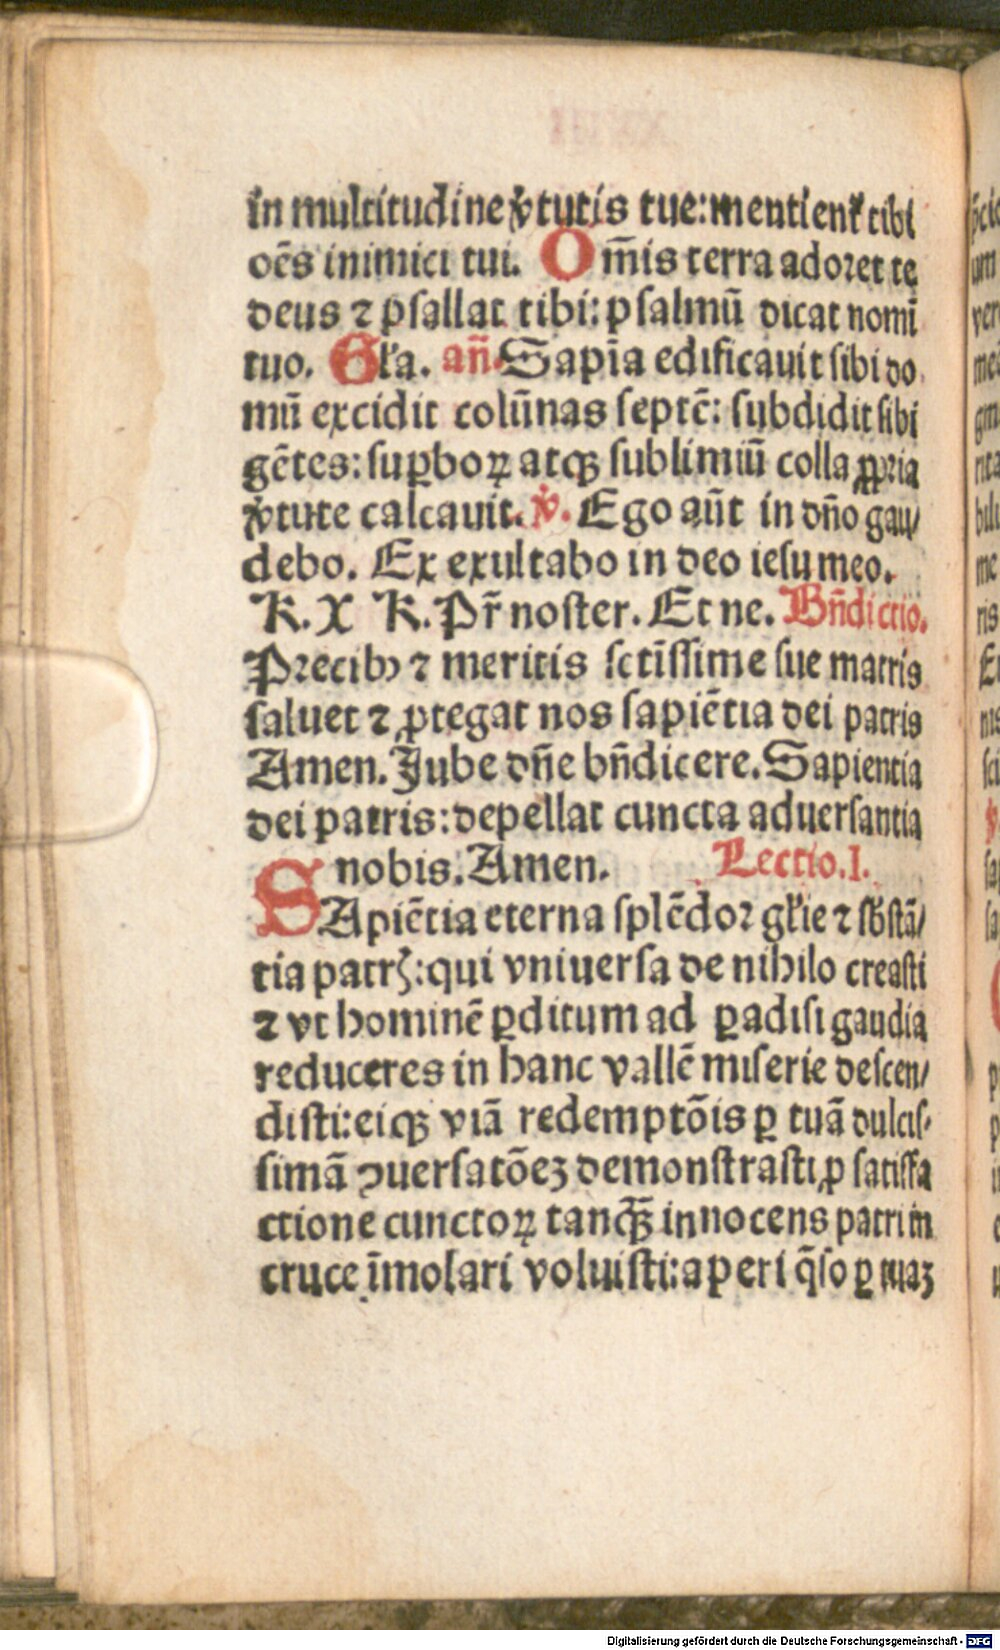 in multitudine v̾tutis tue:mentient᷑ tibi
oēs inimici tui. Om̄is terra adoret te
deus ⁊ psallat tibi: psalmū dicat nomī
tuo. Gl'a. an̄. Sapiīa edificauit sibi do
mū excidit colūnas septē: subdidit sibi
gētes: suꝑboꝝ atqꝫ sublimiū colla ꝓpria
v̾tute calcauit. ℣. Ego aūt in dn̄o gau/
debo. Ex exultabo in deo iesu meo.
K. X K. Pr̄ noster. Et ne. Bn̄dictio.
Precibꝰ ⁊ meritis sctīssime sue matris
saluet ⁊ ꝓtegat nos sapiētia dei patris
Amen. Jube dn̄e bn̄dicere. Sapientia
dei patris: depellat cuncta aduersantia
nobis. Amen. Lectio.I.
SApiētia eterna splēdor gl'ie ⁊ sb̄stā/
tia patrꝭ: qui vniuersa de nihilo creasti
⁊ vt hominē ꝑditum ad ꝑadisi gaudia
reduceres in hanc vallē miserie descen/
disti: eiqꝫ viā redemptōis ꝑ tuā dulcis-
simā ꝯuersatōeꝫ demonstrasti ꝓ satisfa
ctione cunctoꝝ tanqꝫ̄ innocens patri in
cruce īmolari voluisti: aperi q̄so ꝑ tuaꝫ
Digitalisierung gefördert durch die Deutsche Forschungsgemeinschaft - DFG